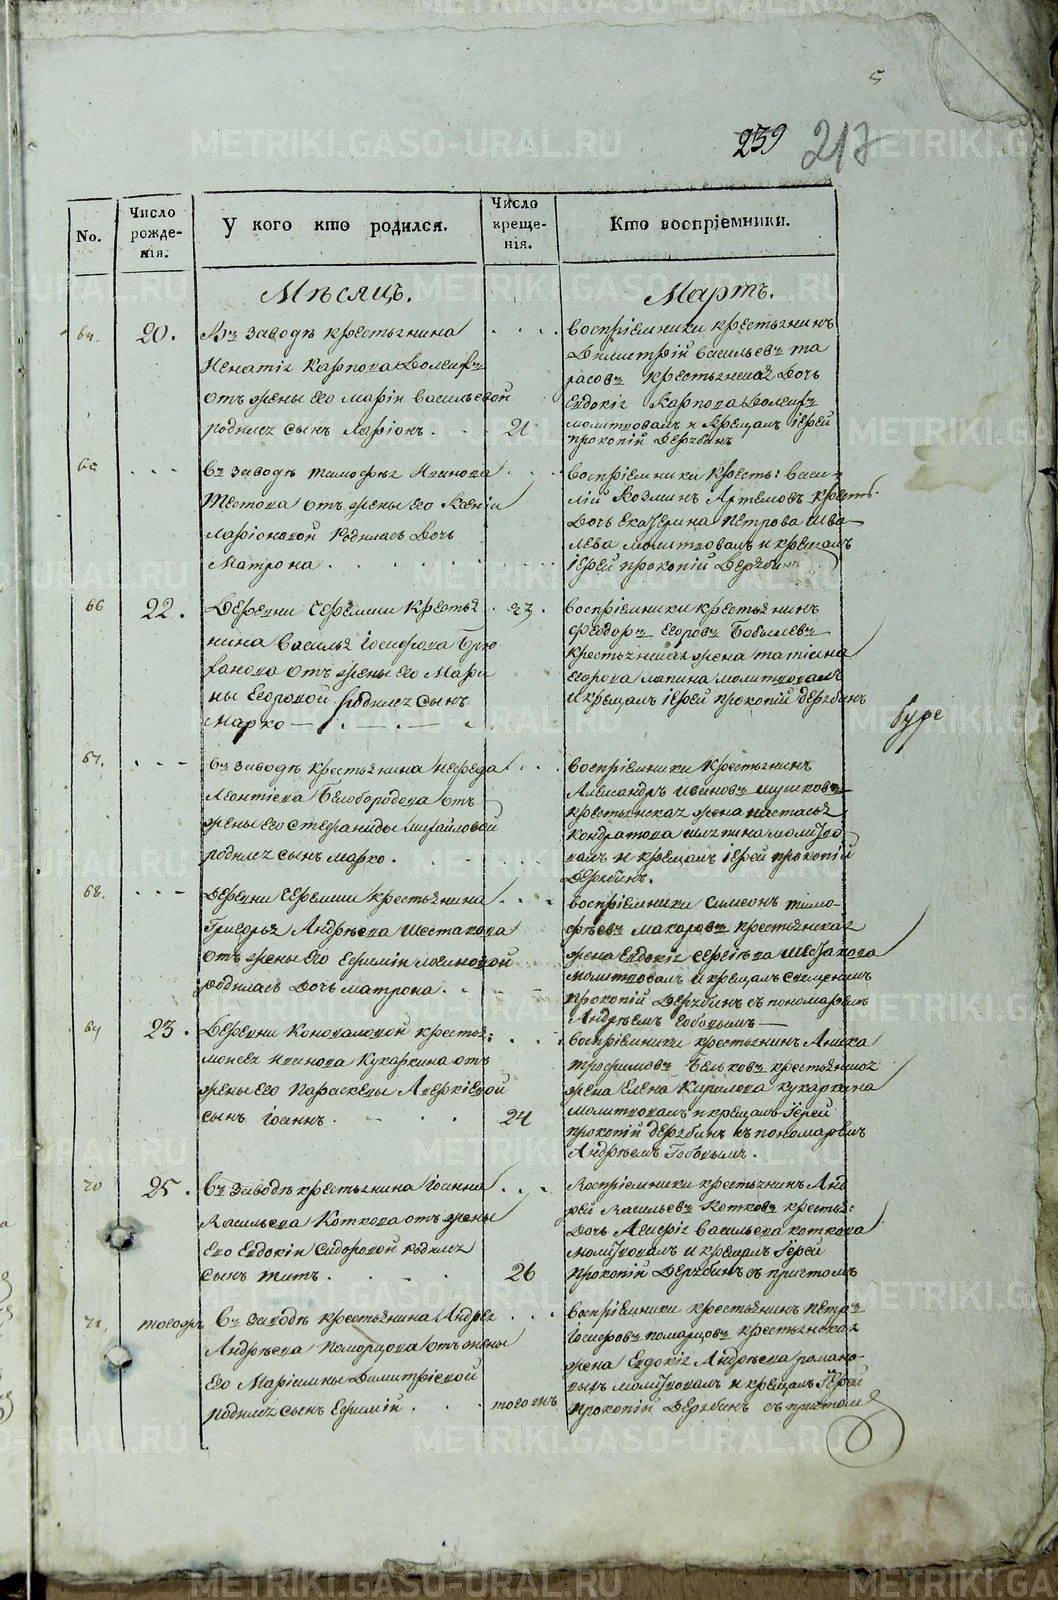 5
239 217
No.
Число рожде- нія.
У кого кто родился.
Число креще- нія.
Кто воспріемники.
Мѣсяцъ.
Мартъ.
64.
20.
Въ заводѣ крестьянина
Игнатія Карпова
отъ жены его Маріи Васильевой
родился сынъ Ларіонъ.
21
воспріемники крестьянинъ
Димитрій Васильевъ та
расовъ крестьянская дочь
Евдокія Карпова
молитвовалъ и крещалъ іерей
прокопій Дерябинъ
65
въ заводѣ тимофея Иванова
Шестова отъ жены его Ксеніи
Ларіоновой родилась дочь
Матрона
воспріемники крестъ: васи-
лій Козминъ Артемовъ крестъ:
дочь екатерина петрова шва-
лева молитвовалъ и крещалъ
іерей прокопій Дерябинъ
66
22.
Деревни Черемши крестья
нина василья іосифова
отъ жены его Мари
ны Егоровой родился сынъ
Марко
23.
воспріемники крестьянинъ
Феодоръ Егоровъ Бобылевъ
крестьянская жена татіана
Егорова лапина молитвовалъ
и крещалъ іерей прокопій дерябинъ
67.
въ заводѣ крестьянина
Леонтіева Белобородова отъ
жены его Стефаниды Михайловой
родился сынъ Марко.
воспріемники крестьянинъ
Александръ Ивановъ
крестьянская жена настасья
Кондратова молитво
валъ и крещалъ іерей прокопій
Дерябинъ.
68.
Деревни Черемши крестьянина
Григорья Андрѣева Шестакова
отъ жены его Евфиміи
родилась дочь матрона.
воспріемники Симеонъ тимо-
фѣевъ макаровъ крестьянская
жена Евдокія Сергіева Шестакова
молитвовалъ и крещалъ священникъ
прокопій Дерябинъ съ пономаремъ
Андрѣемъ
69
23.
Деревни Коноваловой крестья:
моисея Иванова Кукаркина отъ
жены его Параскевы Аверкіевой
сынъ Іоаннъ.
24
воспріемники крестьянинъ Аника
трофимовъ Бельковъ крестьянская
жена Елена Кирилова кукаркина
молитвовалъ и крещалъ іерей
прокопій дерябинъ съ пономаремъ
Андрѣемъ
70
25.
Въ заводѣ крестьянина Іоанна
Васильева Коткова отъ жены
Его Евдокіи Сидоровой родился
сынъ титъ.
26
Воспріемники крестьянинъ Анд
рей Васильевъ Котковъ крестья:
дочь васильева коткова
молитвовалъ и крещалъ іерей
прокопій Дерябинъ съ причтомъ
71.
тогожъ
Въ заводѣ крестьянина Андрея
Андрѣева Поморцова отъ жены
Его Маріамны Димитріевой
родился сынъ Ефимій
тогожъ
воспріемники крестьянинъ петръ
поморцовъ крестьянская
жена Евдокія Андрѣева романо-
выхъ молитвовалъ и крещалъ іерей
прокопій Дерябинъ съ причтом
METRIKI.GASO-URAL.RU